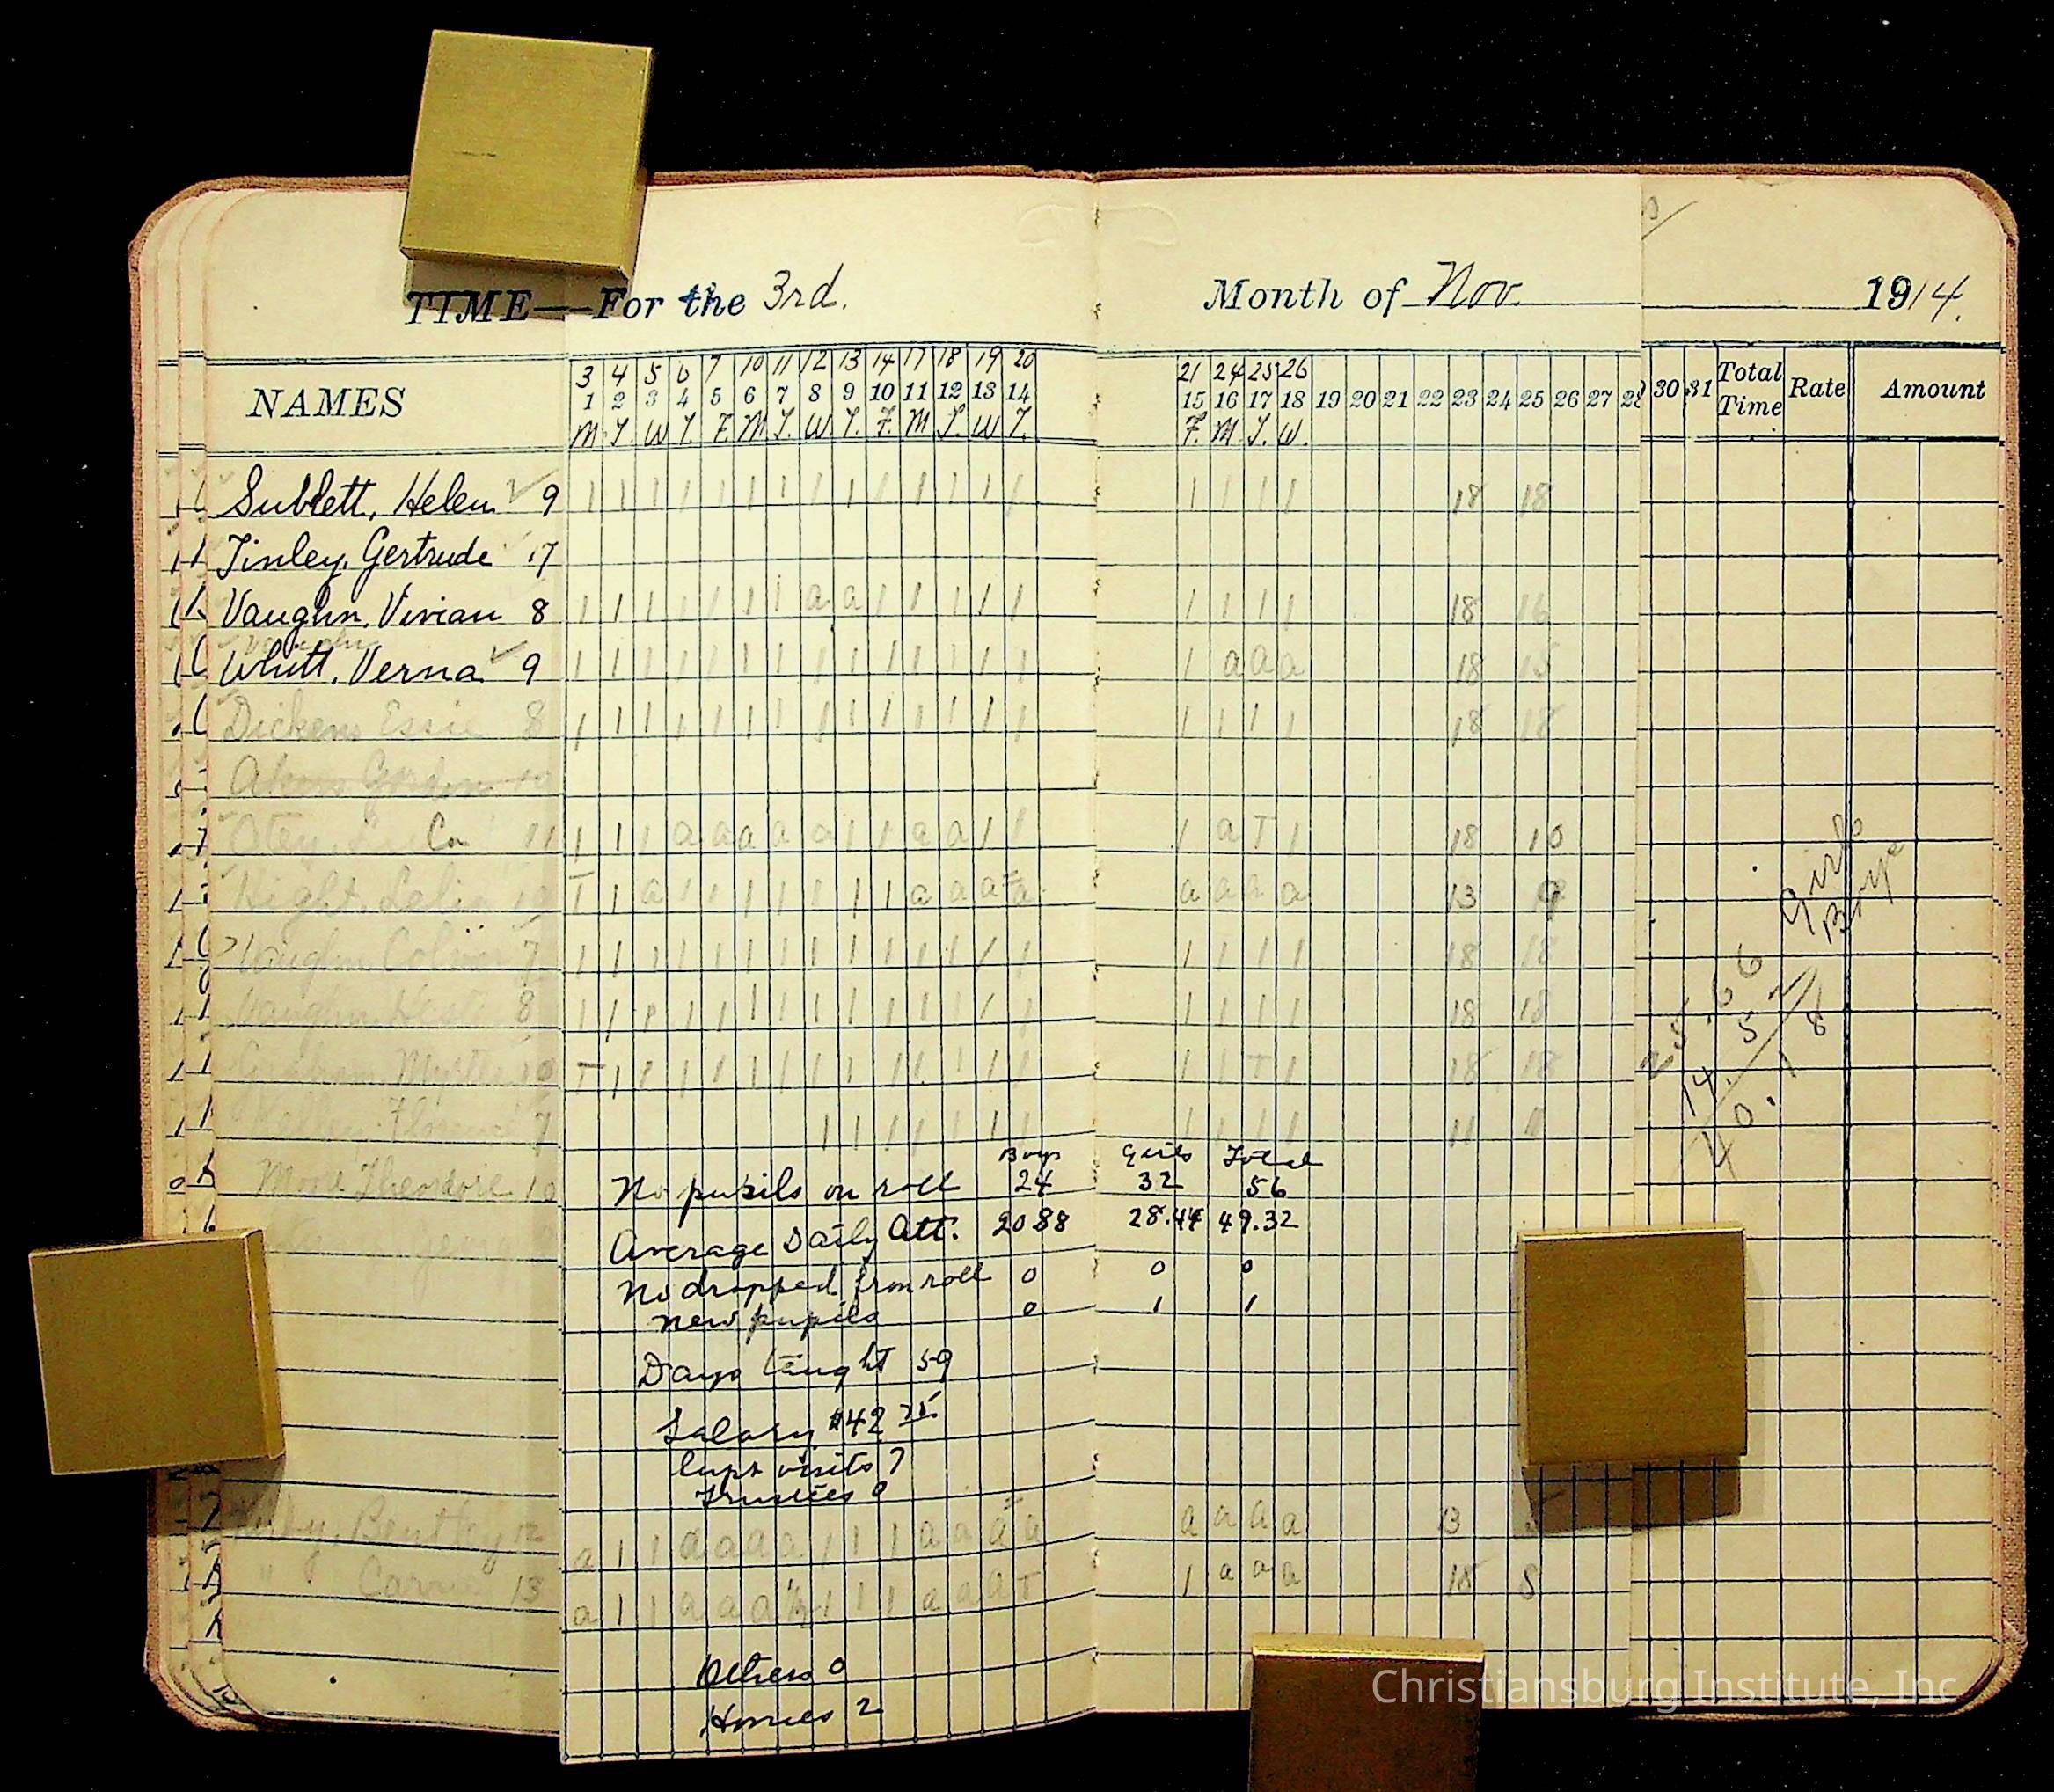 TIME—For the 3rd. Month of Nov. 1914.
3 4 5 6 7 10 11 12 13 14 17 18 19 20 21 24 25 26
NAMES 1 2 3 4 5 6 7 8 9 10 11 12 13 14 15 16 17 18 19 20 21 22 23 24 25 26 27 28 30 31 Total Time Rate Amount
M T. W T. F. M T. W. T. F. M T. W T. F. M T. W.
Sublett, Helen 9 1 1 1 1 1 1 1 1 1 1 1 1 1 1 1 1 1 1 18 18
Tinley, Gertrude 17
Vaughn, Vivian 8 1 1 1 1 1 1 1 a a 1 1 1 1 1 1 1 1 1 18 16
Whitt, Verna 9 1 1 1 1 1 1 1 1 1 1 1 1 1 1 1 a a a 18 15
Dickens Essie 8 1 1 1 1 1 1 1 1 1 1 1 1 1 1 1 1 1 1 18 18
Akers Gordon 10
Otey 11 1 1 1 a a a a a 1 1 a a 1 1 1 a T 1 18 10
Hight, 10 T 1 a 1 1 1 1 1 1 1 a a a a a a a a 13 9
Vaughn 7 1 1 1 1 1 1 1 1 1 1 1 1 1 1 1 1 1 1 18 18
Vaughn 8 1 1 1 1 1 1 1 1 1 1 1 1 1 1 1 1 1 1 18 18
Graham, Myrtle 10 T 1 1 1 1 1 1 1 1 1 1 1 1 1 1 1 T 1 18 18
Kelley, Florence 7 1 1 1 1 1 1 1 1 1 1 1 11 11
Boys Girls Total
Theodore 10 No pupils on roll 24 32 56
Average Daily Att. 20 88 28.44 49.32
No dropped from roll 0 0 0
new pupils 0 1 1
Days taught 59
Salary $42 25
Supt visits 7
Trustees 0
Bentley 12 a 1 1 a a a a 1 1 1 a a a a a a a a 13 5
" Carrie 13 a 1 1 a a a 1 1 1 a a a T 1 a a a 18 8
Others 0
Homes 2
Girls
Boys
25.66
14.52
40.18
Christiansburg Institute, Inc